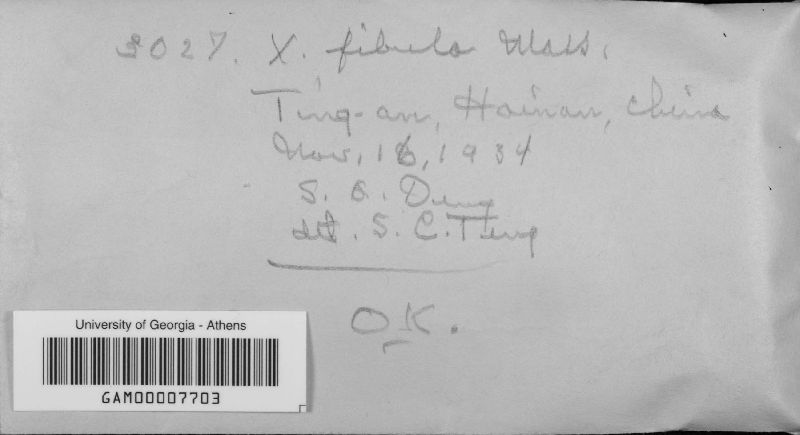 3027. X. fibula Mass.
Ting-an, Hainan, China
Nov. 16, 1934
S. Q. Deng
det. S. C. Teng
OK.
University of Georgia - Athens
GAM00007703